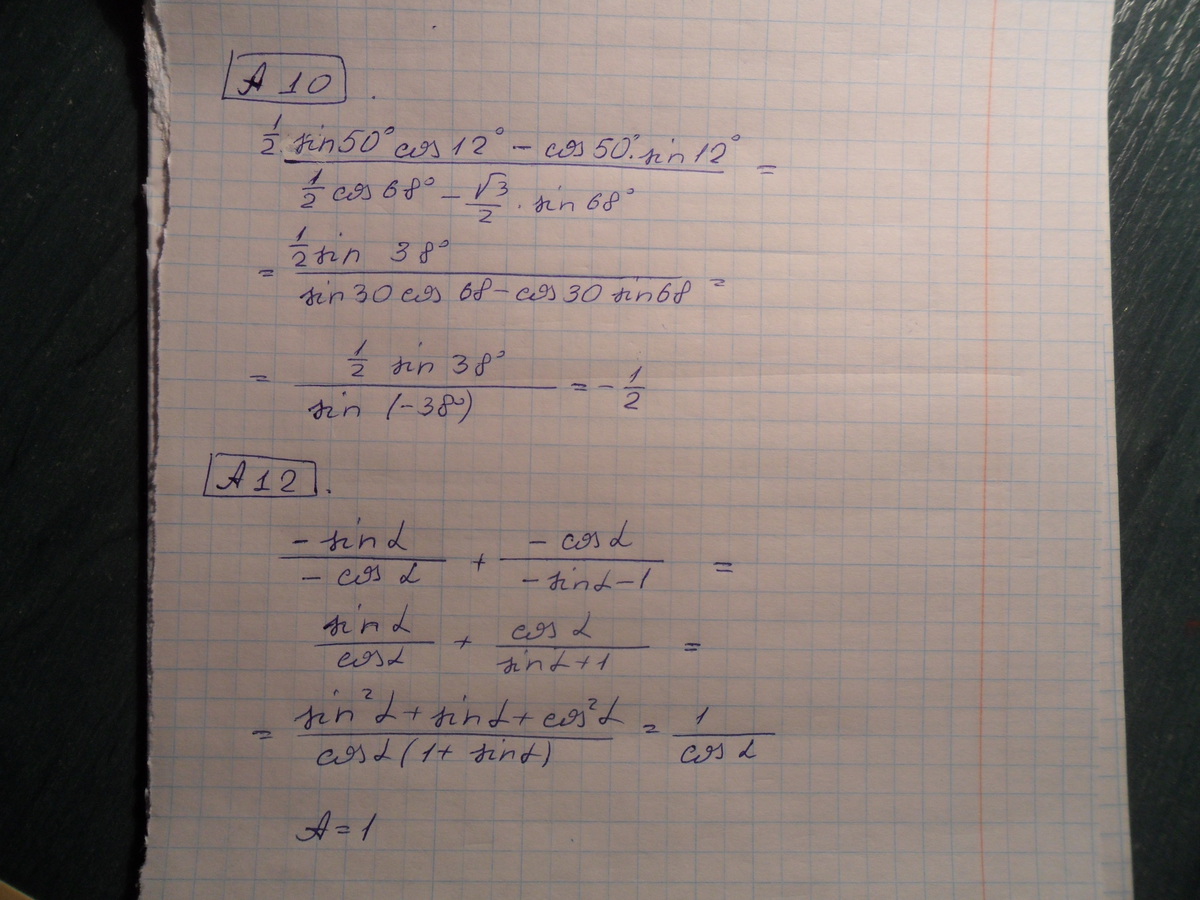 A 10.
1/2 · sin50° cos12° − cos50° · sin12°
/ 1/2 cos68° − √3/2 · sin68° =
= 1/2 sin 38° / sin30 cos68 − cos30 sin68 =
= 1/2 sin 38° / sin (−38°) = − 1/2
A 12.
− sin α / − cos α + − cos α / − sin α − 1 =
sin α / cos α + cos α / sin α + 1 =
= sin² α + sin α + cos² α / cos α (1 + sin α) = 1 / cos α
A = 1